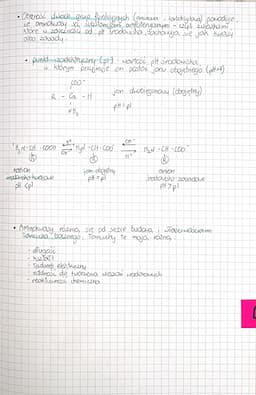 • Obecność dwóch grup funkcyjnych (aminowa i karboksylowa) powoduje,
że aminokwasy są związkami amfoterycznymi - czyli związkami,
które w zależności od pH środowiska zachowują się jak kwasy
albo zasady.
• punkt izoelektryczny (pI) wartość pH środowiska,
w którym przyjmuje on postać jonu obojętnego (pH=pI)
COO⁻
R - Cα - H
NH₃
jon dwubiegunowy (obojętny)
pH = pI
H₃N - CH - COOH ⇄ H₃N⁺ - CH - COO⁻ ⇄ H₂N - CH - COO⁻
H⁺ OH⁻
OH⁻ H⁺
R R R
kation jon obojętny anion
pH = pI środowisko zasadowe
pH < pI pH > pI
• Aminokwasy różnią się od siebie budową i właściwościami
łańcucha bocznego. Łańcuchy te mają różną:
- długość
- kształt
- ładunek elektryczny
- zdolność do tworzenia wiązań wodorowych
- reaktywność chemiczną